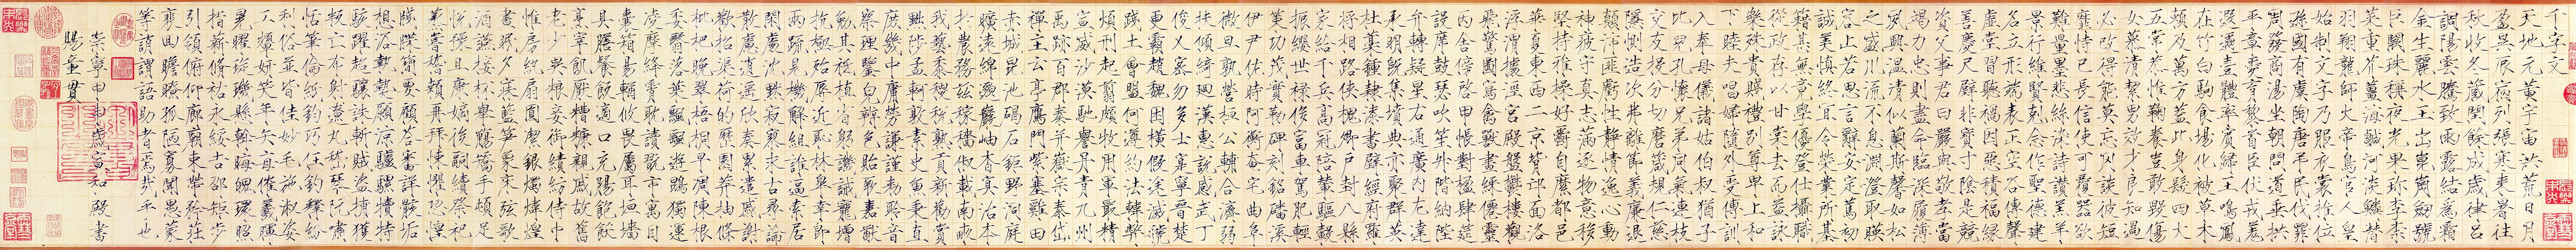 千字文
天地元黃宇宙洪荒日月
盈昃辰宿列張寒來暑往
秋收冬藏閏餘成歲律呂
調陽雲騰致雨露結為霜
金生麗水玉出崑崗劍號
巨闕珠稱夜光果珍李柰
菜重芥薑海鹹河淡鱗潛
羽翔龍師火帝鳥官人皇
始制文字乃服衣裳推位
遜國有虞陶唐弔民伐罪
周發商湯坐朝問道垂拱
平章愛育黎首臣伏戎羌
遐邇壹體率賓歸王鳴鳳
在竹白駒食場化被草木
賴及萬方蓋此身髮四大
五常恭惟鞠養豈敢毀傷
女慕清潔男效才良知過
必改得能莫忘罔談彼短
靡恃己長信使可覆器欲
難量墨悲絲染詩讚羔羊
景行維賢剋念作聖德建
名立形端表正空谷傳聲
虛堂習聽禍因惡積福緣
善慶尺璧非寶寸陰是競
資父事君曰嚴與敬孝當
竭力忠則盡命臨深履薄
夙興溫凊似蘭斯馨如松
之盛川流不息淵澄取暎
容止若思言辭安定篤初
誠美慎終宜令榮業所基
籍甚無竟學優登仕攝職
從政存以甘棠去而益詠
樂殊貴賤禮別尊卑上和
下睦夫唱婦隨外受傅訓
入奉母儀諸姑伯叔猶子
比兒孔懷兄弟同氣連枝
交友投分切磨箴規仁慈
隱惻造次弗離節義廉退
顛沛匪虧性靜情逸心動
神疲守真志滿逐物意移
堅持雅操好爵自縻都邑
華夏東西二京背邙面洛
浮渭據涇宮殿盤鬱樓觀
飛驚圖寫禽獸畫綵僊靈
丙舍傍啓甲帳對楹肆筵
設席鼓瑟吹笙升階納陛
弁轉疑星右通廣內左達
承明既集墳典亦聚群英
杜藁鍾隸漆書壁經府羅
將相路俠槐卿戶封八縣
家給千兵高冠陪輦驅轂
振纓世祿侈富車駕肥輕
策功茂實勒碑刻銘磻溪
伊尹佐時阿衡奄宅曲阜
微旦孰營桓公輔合濟弱
扶傾綺迴漢惠說感武丁
俊乂密勿多士寔寧晉楚
更霸趙魏困橫假途滅虢
踐土會盟何遵約法韓弊
煩刑起翦頗牧用軍最精
宣威沙漠馳譽丹青九州
禹跡百郡秦并嶽宗泰岱
禪主云亭鴈門紫塞雞田
赤城昆池碣石鉅野洞庭
曠遠綿邈巖岫杳冥治本
於農務茲稼穡俶載南畝
我藝黍稷稅熟貢新勸賞
黜陟孟軻敦素史魚秉直
庶幾中庸勞謙謹勑聆音
察理鑒皃辯色貽厥嘉猷
勉其祗植省躬譏誡寵增
抗極殆辱近恥林皋幸即
兩疏見機解組誰逼索居
閑處沈默寂寥求古尋論
散慮逍遙欣奏累遣慼謝
歡招渠荷的歷園莽抽條
枇杷晚翠梧桐早凋陳根
委翳落葉飄颻遊鵾獨運
凌摩絳霄耽讀翫市寓目
囊箱易輶攸畏屬耳垣墻
具膳餐飯適口充腸飽飫
烹宰飢厭糟糠親戚故舊
老少異糧妾御績紡侍巾
帷房紈扇圓潔銀燭煒煌
晝眠夕寐藍笋象床弦歌
酒讌接杯舉觴矯手頓足
悅豫且康嫡後嗣續祭祀
蒸嘗稽顙再拜悚懼恐惶
牋牒簡要顧答審詳骸垢
想浴執熱願涼驢騾犢特
駭躍超驤誅斬賊盜捕獲
叛亡布射遼丸嵇琴阮嘯
恬筆倫紙鈞巧任釣釋紛
利俗並皆佳妙毛施淑姿
工顰妍笑年矢每催羲暉
晃曜琁璣懸斡晦魄環照
指薪脩祜永綏吉劭矩步
引領俯仰廊廟束帶矜莊
裵徊瞻眺孤陋寡聞愚蒙
等誚謂語助者焉哉乎也
崇寧甲申歲宜和殿書
賜童貫